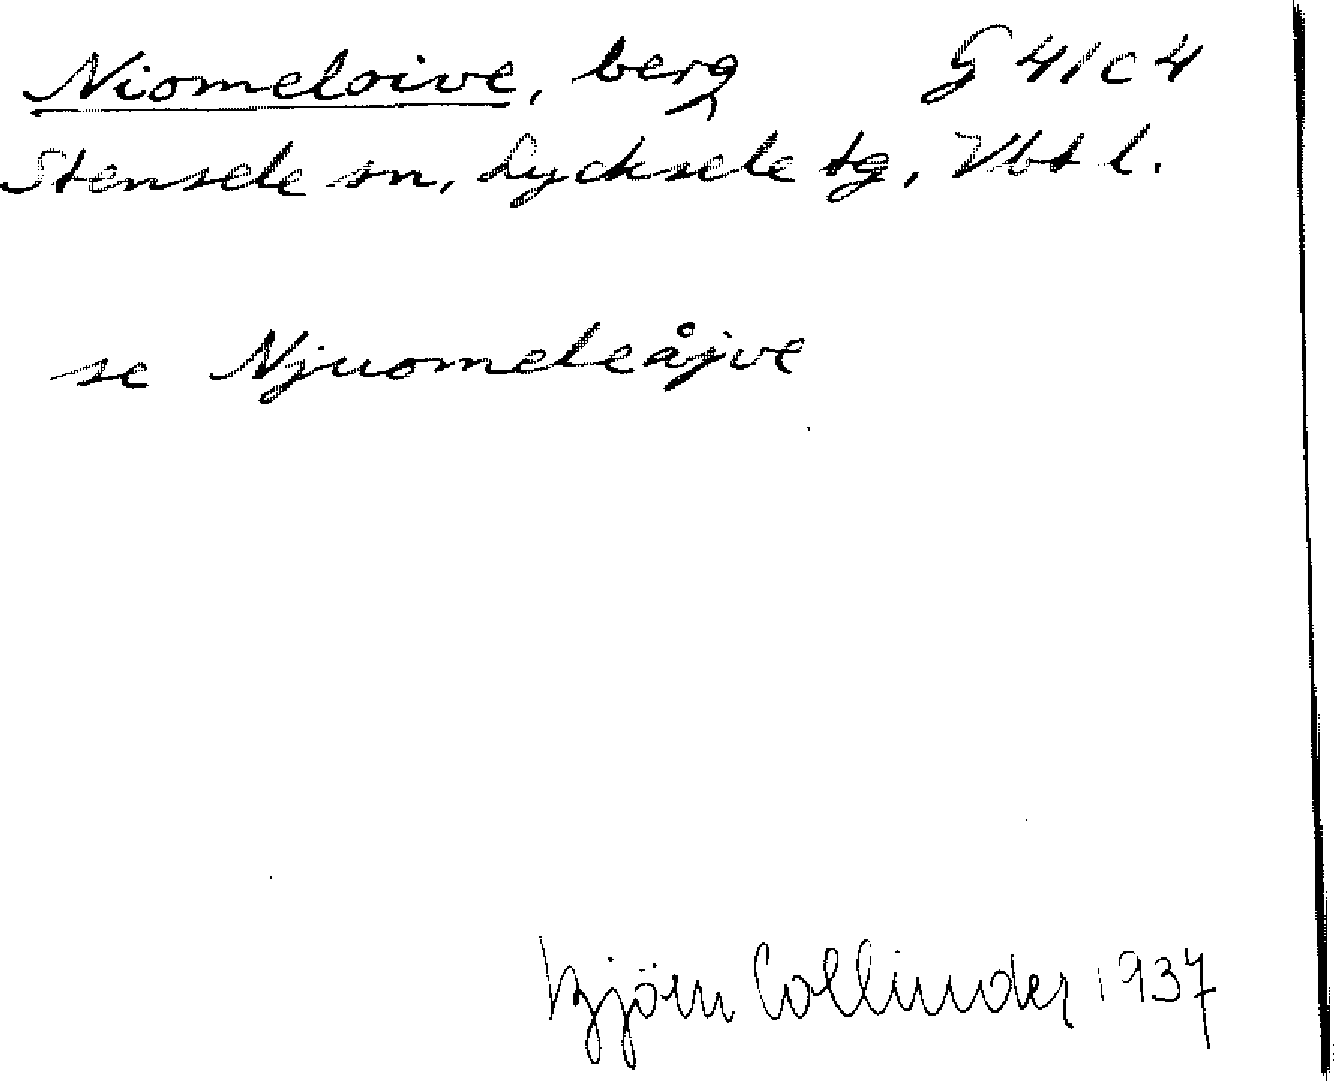 Niomeloive, berg G 41 c 4
Stensele sn, Lycksele tg, Vbt l.
se Njuomeleåjve
Björn Collinder 1937